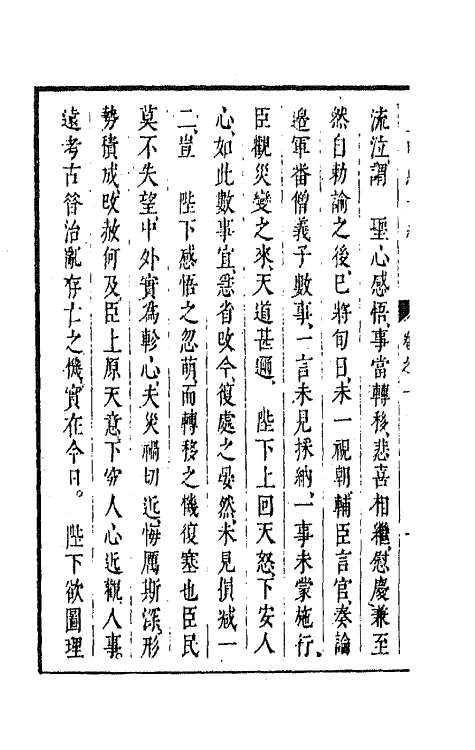 流泣謂　聖心感悟、事當轉移、悲喜相繼、慰慶兼至
然自勅諭之後、已將旬日、未一視朝、輔臣言官、奏論
邉軍番僧義子數事、一言未見採納、一事未蒙施行、
臣觀災變之來、天道甚邇、　陛下上回天怒、下安人
心、如此數事、宜急省改、今復處之晏然、未見損减一
二、豈　陛下感悟之忽萌、而轉移之機復塞也、臣民
莫不失望、中外實爲軫心、夫災禍切近、悔厲斯深、形
勢積成、改赦何及、臣上原天意、下察人心、近觀人事、
遠考古昔治亂存亡之機、實在今日。　陛下欲圖理
卷之一